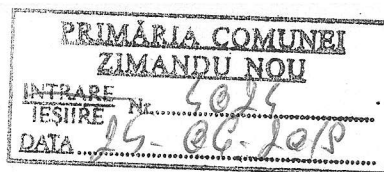 PRIMĂRIA COMUNEI
ZIMANDU NOU
INTRARE
IEȘIIRE Nr. 4024
DATA 25-06-2018